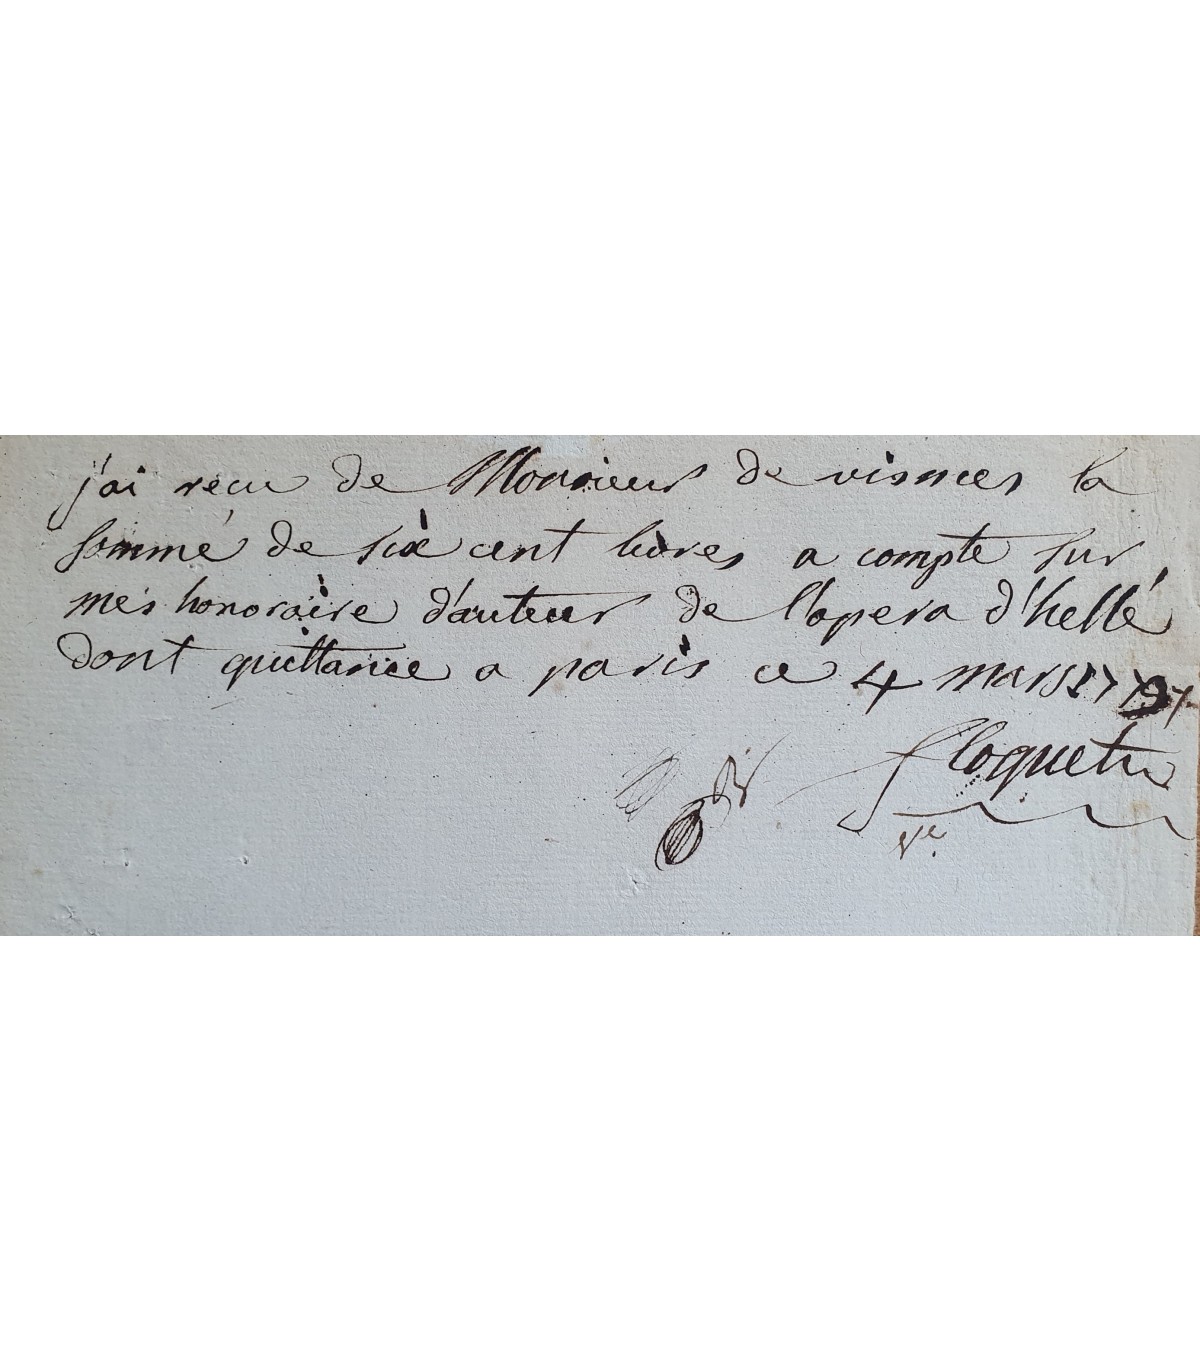 j'ai recu de Monsieur de visnes la
sommé de six cent livres a compte sur
mes honoraire d'auteur de l'opera d'hellé
dont quittance a paris ce 4 mars
floquet